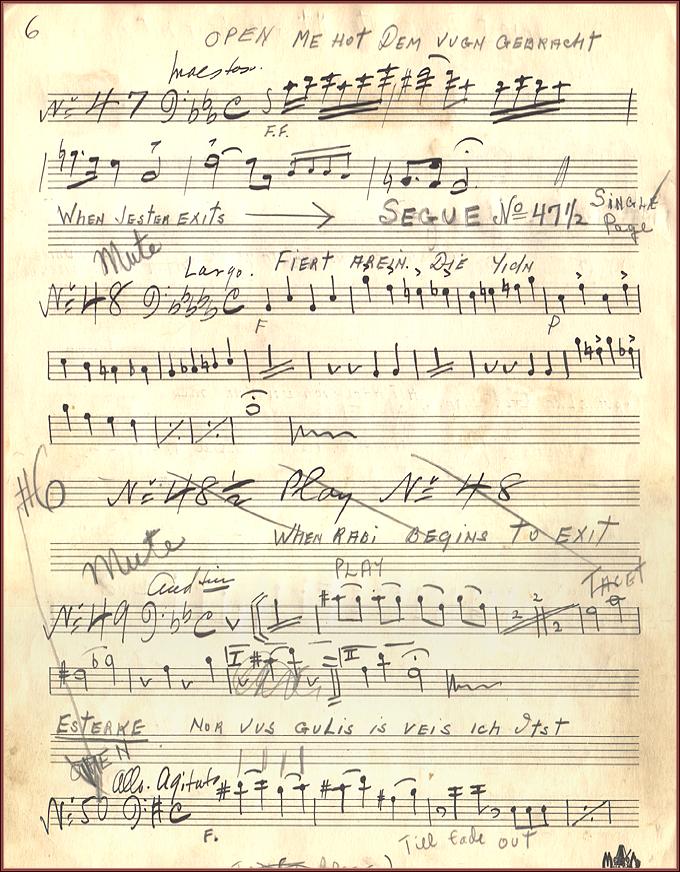 6
OPEN ME HOT DEM VUGN GEBRACHT
Maestoso.
No 47 C
F.F.
WHEN JESTER EXITS → SEGUE No 47½ SINGLE Page
Mute
Largo. FIERT AREIN. DIE YIDN
No 48 C
F P
#6 No 48½ Play No 48
WHEN RABI BEGINS TO EXIT
Mute PLAY TACET
No 49 C
2 2 2
I II
ESTERKE NOR VUS GULIS IS VEIS ICH ITST
OPEN
Allo. Agitato
No 50 C
F. Till fade out